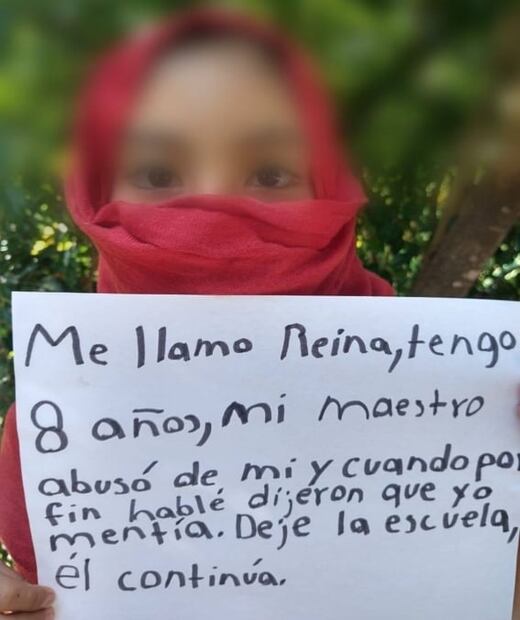 Me llamo Reina, tengo
8 años, mi maestro
abusó de mi y cuando por
fin hablé dijeron que yo
mentía. Deje la escuela,
él continúa.